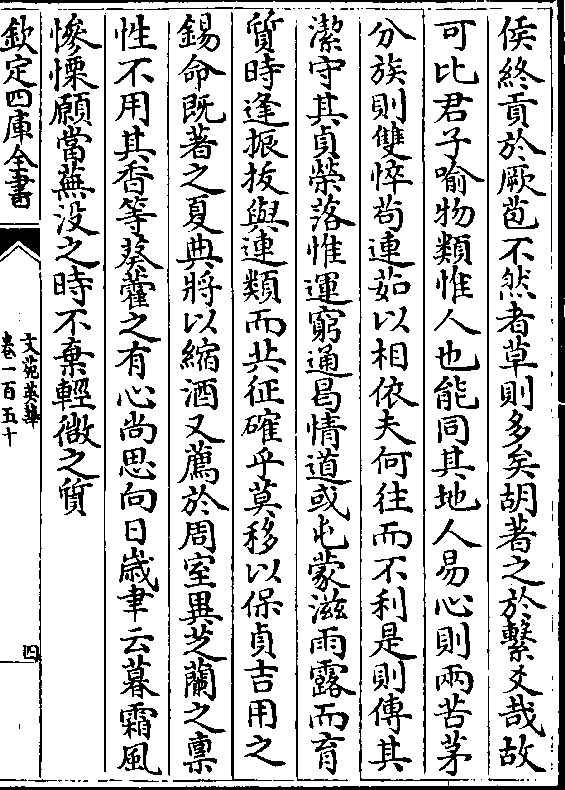 侯終貢於厥苞不然者草則多矣胡著之於繫爻哉故
可比君子喻物類惟人也能同其地人易心則兩苦茅
分族則雙悴苟連茹以相依夫何往而不利是則傳其
潔守其貞榮落惟運窮通曷情道或屯蒙滋雨露而育
質時逢振拔與連類而共征確乎莫移以保貞吉用之
錫命既著之夏典將以縮酒又薦於周室異芝蘭之稟
性不用其香等葵藿之有心尚思向日歲聿云暮霜風
慘慄願當蕪没之時不棄輕微之質
欽定四庫全書
文苑英華
卷一百五十
四